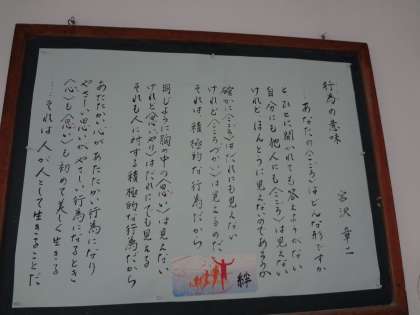 行為の意味
宮沢章二
……あなたの〈こころ〉はどんな形ですか
とひとに聞かれても答えようがない
自分にも他人にも〈こころ〉は見えない
けれどほんとうに見えないのであろうか
確かに〈こころ〉はだれにも見えない
けれど〈こころづかい〉は見えるのだ
それは、積極的な行為だから
同じように胸の中の〈思い〉は見えない
けれど〈思いやり〉はだれにでも見える
それも人に対する積極的な行為だから
あたたかい心があたたかい行為になり
やさしい思いがやさしい行為になるとき
〈心〉も〈思い〉も初めて美しく生きる
……それは人が人として生きることだ
絆